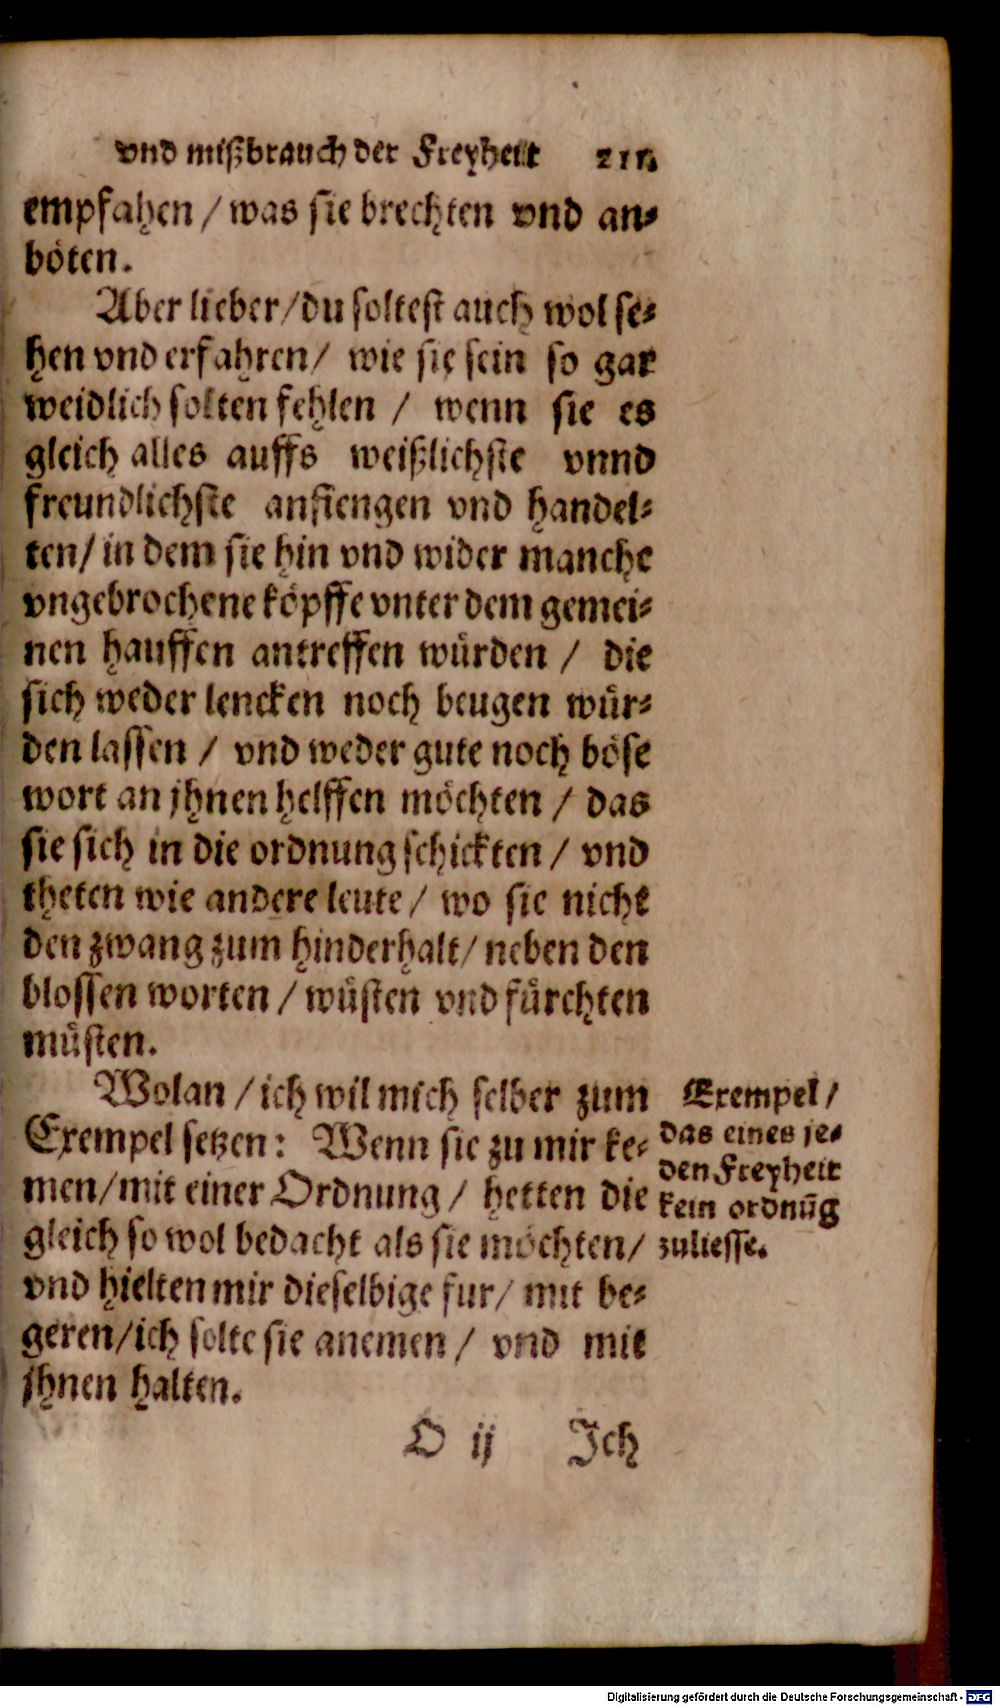 vnd mißbrauch der Freyheit 211.
empfahen / was sie brechten vnd an-
böten.
Aber lieber / du soltest auch wol se-
hen vnd erfahren / wie sie sein so gar
weidlich solten fehlen / wenn sie es
gleich alles auffs weißlichste vnnd
freundlichste anfiengen vnd handel-
ten / in dem sie hin vnd wider manche
vngebrochene köpffe vnter dem gemei-
nen hauffen antreffen würden / die
sich weder lencken noch beugen wür-
den lassen / vnd weder gute noch böse
wort an jhnen helffen möchten / das
sie sich in die ordnung schickten / vnd
theten wie andere leute / wo sie nicht
den zwang zum hinderhalt / neben den
blossen worten / wüsten vnd fürchten
müsten.
Wolan / ich wil mich selber zum
Exempel setzen: Wenn sie zu mir ke-
men / mit einer Ordnung / hetten die
gleich so wol bedacht als sie möchten /
vnd hielten mir dieselbige fur / mit be-
geren / ich solte sie anemen / vnd mit
jhnen halten.
Exempel /
das eines je-
den Freyheit
kein ordnūg
zuliesse.
O ij Jch
Digitalisierung gefördert durch die Deutsche Forschungsgemeinschaft - DFG